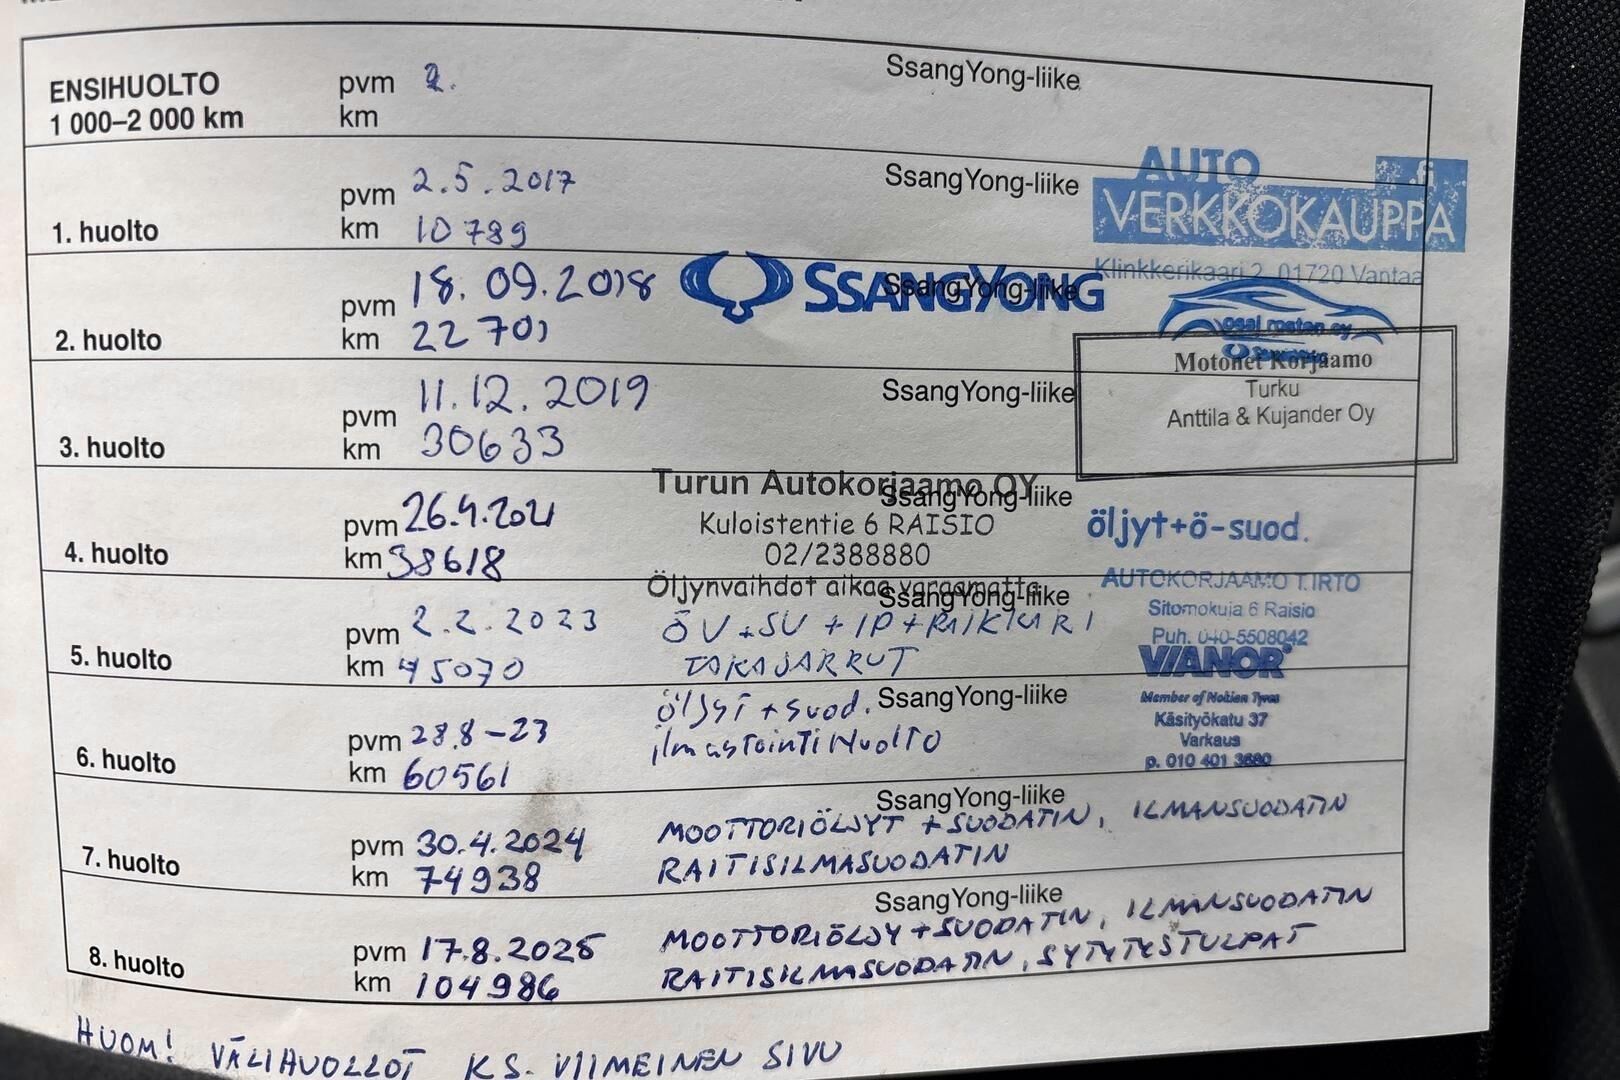 ENSIHUOLTO pvm 2. SsangYong-liike
1 000–2 000 km km
1. huolto pvm 2.5.2017 SsangYong-liike
km 10789
AUTO .fi
VERKKOKAUPPA
Klinkkerikaari 2, 01720 Vantaa
2. huolto pvm 18.09.2018 SSANGYONG SsangYong-liike
km 22 701
3. huolto pvm 11.12.2019 SsangYong-liike
km 30633
Motonet Korjaamo
Turku
Anttila & Kujander Oy
4. huolto pvm 26.4.2021 SsangYong-liike
km 38618
Turun Autokorjaamo OY
Kuloistentie 6 RAISIO
02/2388880
Öljynvaihdot aikaa varaamatta
öljyt+ö-suod.
5. huolto pvm 2.2.2023 SsangYong-liike
km 45070
ÖV+SU+IP+RAIKKARI
TAKAJARRUT
AUTOKORJAAMO T.IRTO
Sitomokuja 6 Raisio
Puh. 040-5508042
6. huolto pvm 28.8-23 SsangYong-liike
km 60561
öljyt+suod.
ilmastointiHuolto
VIANOR
Member of Nokian Tyres
Käsityökatu 37
Varkaus
p. 010 401 3680
7. huolto pvm 30.4.2024 SsangYong-liike
km 74938
MOOTTORIÖLJYT +SUODATIN, ILMANSUODATIN
RAITISILMASUODATIN
8. huolto pvm 17.8.2025 SsangYong-liike
km 104986
MOOTTORIÖLJY+SUODATIN, ILMANSUODATIN
RAITISILMASUODATIN, SYTYTYSTULPAT
HUOM! VÄLIHUOLLOT KS. VIIMEINEN SIVU